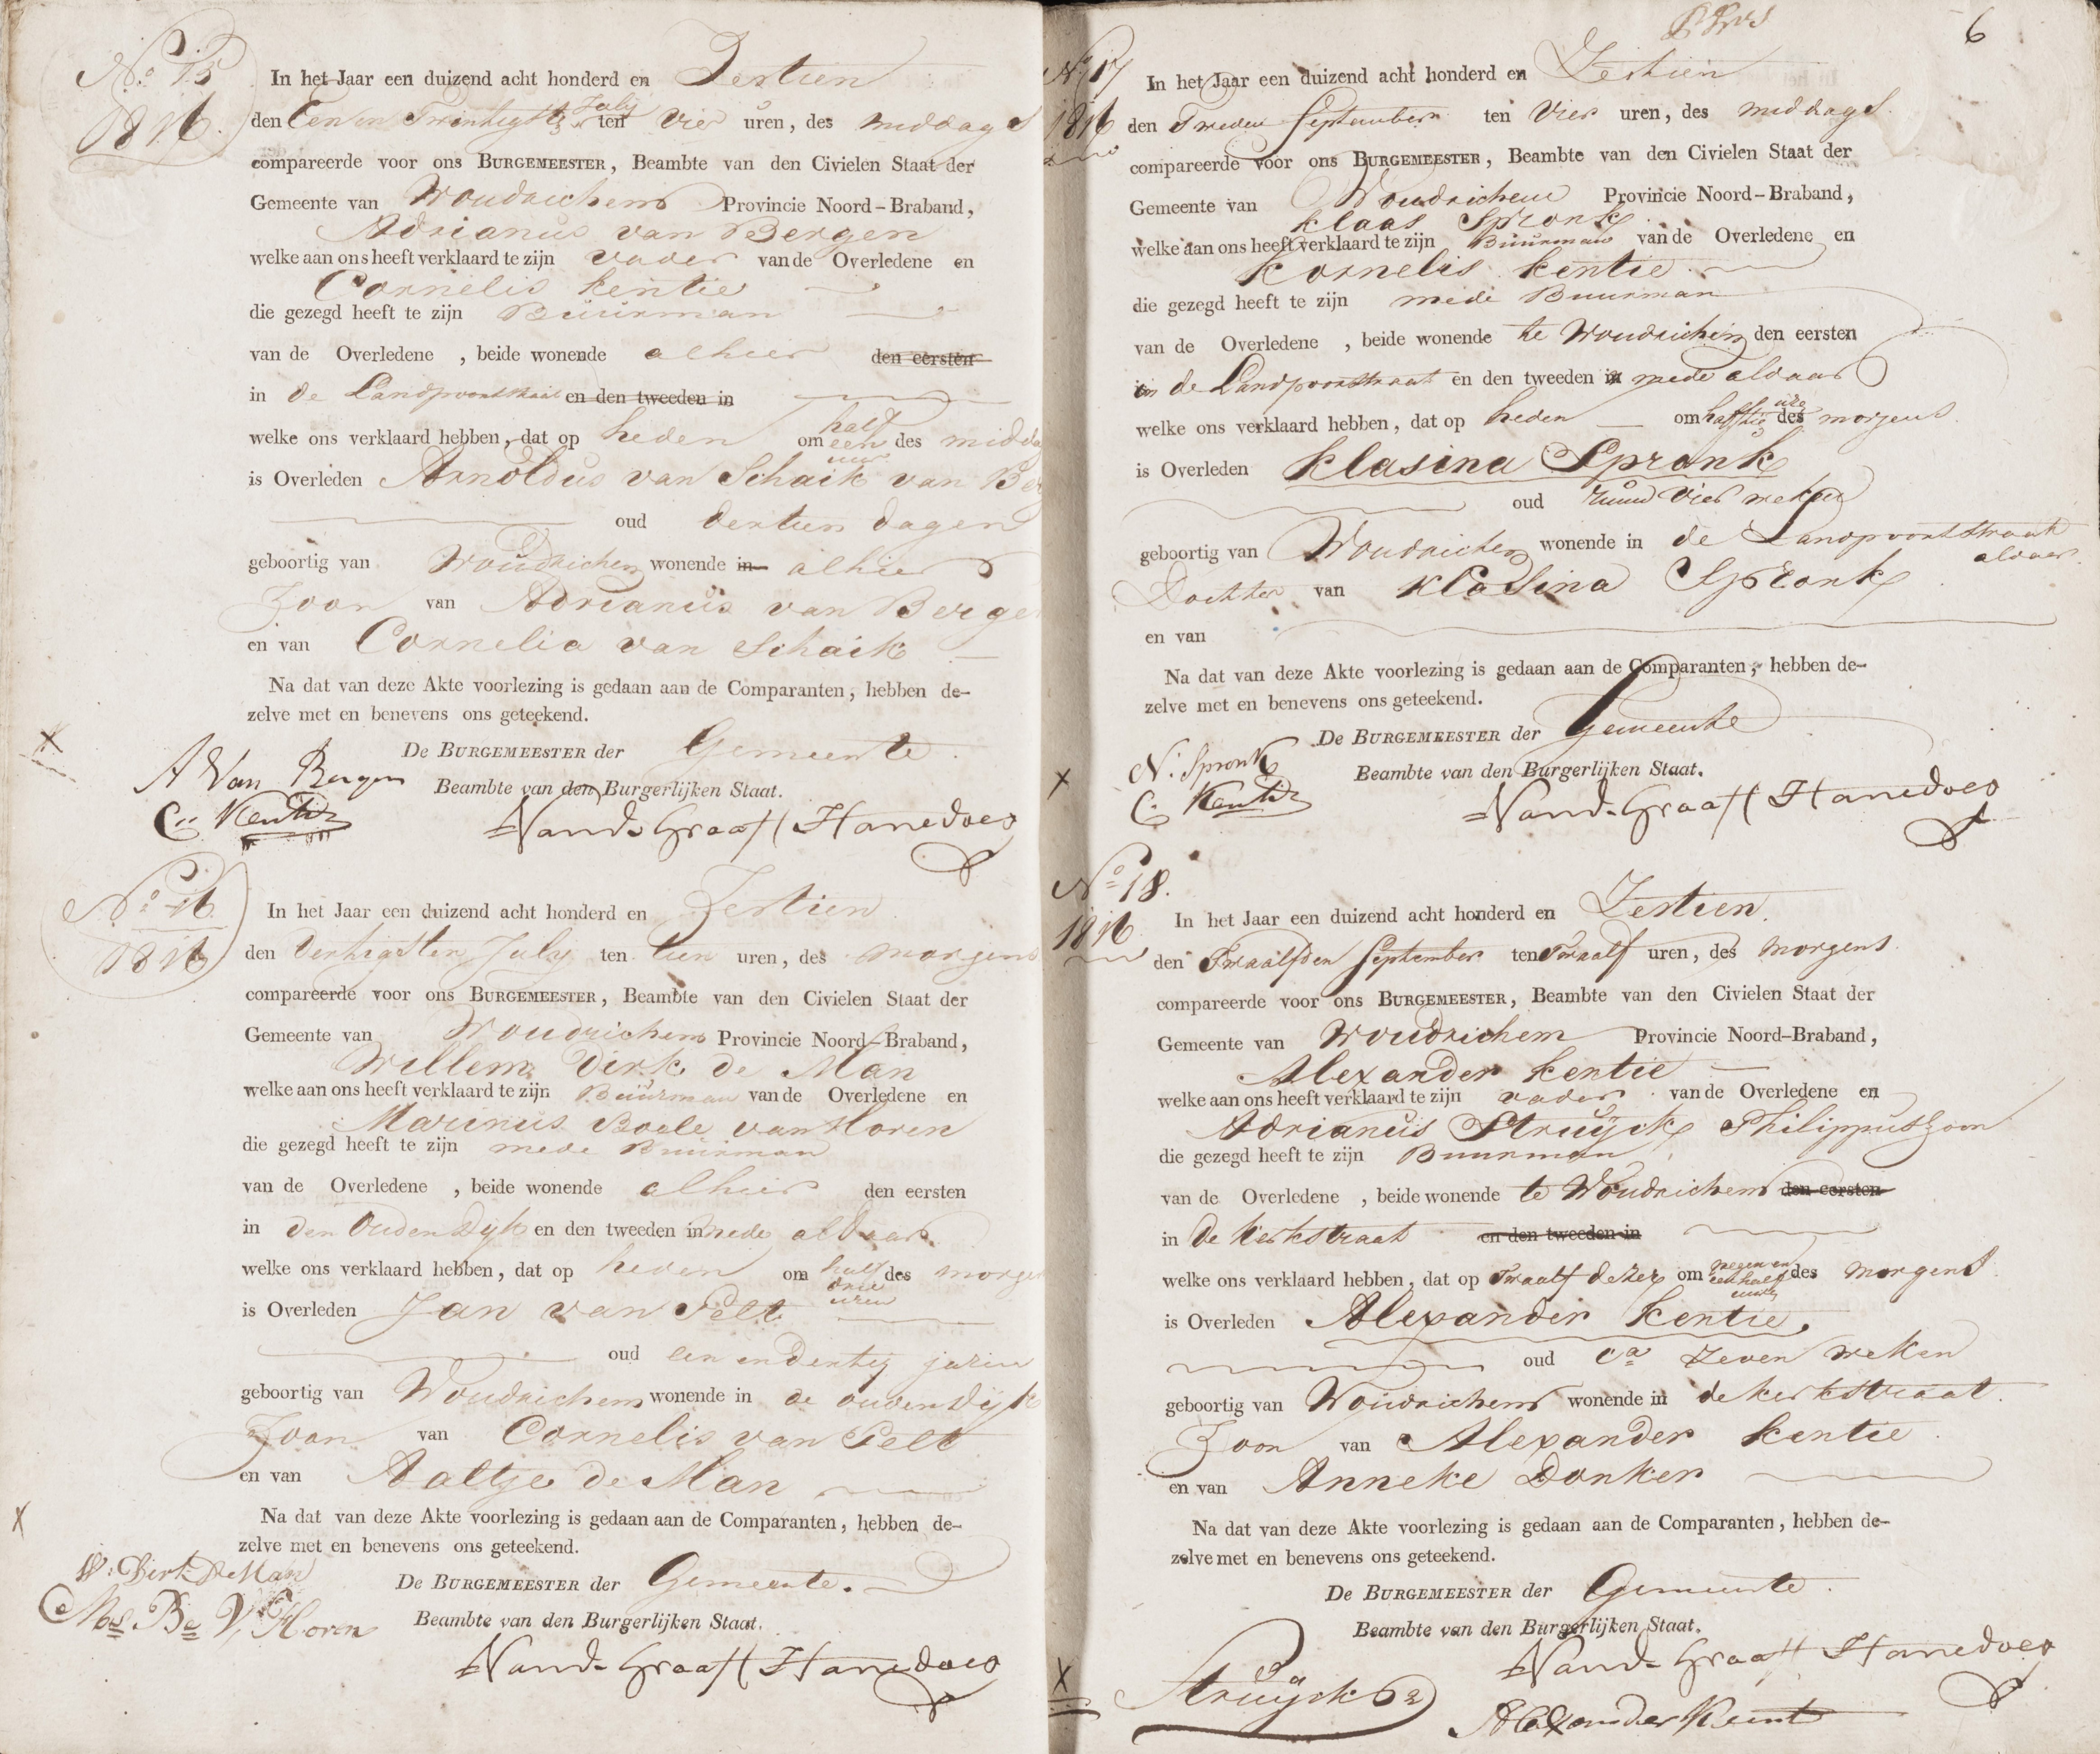 No. 15
1816.
In het Jaar een duizend acht honderd en Zestien
den Een en Twintigste July ten Vier uren, des middags
compareerde voor ons BURGEMEESTER, Beambte van den Civielen Staat der
Gemeente van Woudrichem Provincie Noord-Braband,
Adrianus van Bergen
welke aan ons heeft verklaard te zijn vader van de Overledene en
Cornelis kentie
die gezegd heeft te zijn Buurman
van de Overledene, beide wonende alhier den eersten
in de Landpoortstraat en den tweeden in
welke ons verklaard hebben, dat op heden om half een uur des midda
is Overleden Arnoldus van Schaik van Be
oud dertien dagen
geboortig van Woudrichem wonende in alhier
Zoon van Adrianus van Berge
en van Cornelia van Schaik
Na dat van deze Akte voorlezing is gedaan aan de Comparanten, hebben de-
zelve met en benevens ons geteekend.
De BURGEMEESTER der Gemeente.
Beambte van den Burgerlijken Staat.
A Van Bergen
C. Kentie
Vand. Graaff Hanedoes
No. 16
1816
In het Jaar een duizend acht honderd en Zestien
den dertigsten July ten tien uren, des morgens
compareerde voor ons BURGEMEESTER, Beambte van den Civielen Staat der
Gemeente van Woudrichem Provincie Noord-Braband,
Willem Dirk de Man
welke aan ons heeft verklaard te zijn Buurman van de Overledene en
Marinus Boele van Horen
die gezegd heeft te zijn mede Buurman
van de Overledene, beide wonende alhier den eersten
in den Ouden Dyk en den tweeden in mede aldaar
welke ons verklaard hebben, dat op heden om half drie uren des morgen
is Overleden Jan van Pelt
oud een en dertig jaren
geboortig van Woudrichem wonende in de ouden Dyk
Zoon van Cornelis van Pelt
en van Aaltje de Man
Na dat van deze Akte voorlezing is gedaan aan de Comparanten, hebben de-
zelve met en benevens ons geteekend.
W: Dirk De Man
De BURGEMEESTER der Gemeente.
Ms. Be. V. Horen
Beambte van den Burgerlijken Staat.
Vand. Graaff Hanedoes
6
No. 17
1816
In het Jaar een duizend acht honderd en Zestien
den Tweden September ten Vier uren, des middags
compareerde voor ons BURGEMEESTER, Beambte van den Civielen Staat der
Gemeente van Woudrichem Provincie Noord-Braband,
klaas Spronk
welke aan ons heeft verklaard te zijn Buurman van de Overledene en
Kornelis kentie
die gezegd heeft te zijn mede Buurman
van de Overledene, beide wonende te Woudrichem den eersten
in de Landpoortstraat en den tweeden in mede aldaar
welke ons verklaard hebben, dat op heden om half tie ure des morgens
is Overleden Klasina Spronk
oud ruim vier weken
geboortig van Woudrichem wonende in de Landpoortstraat
aldaar.
Dochter van Klasina Spronk
en van
Na dat van deze Akte voorlezing is gedaan aan de Comparanten, hebben de-
zelve met en benevens ons geteekend.
De BURGEMEESTER der Gemeente
N. Spronk
Beambte van den Burgerlijken Staat.
C. Kentie
Vand. Graaff Hanedoes
No. 18.
1816
In het Jaar een duizend acht honderd en Zestien.
den Twaalfden September ten Twaalf uren, des morgens
compareerde voor ons BURGEMEESTER, Beambte van den Civielen Staat der
Gemeente van Woudrichem Provincie Noord-Braband,
Alexander kentie
welke aan ons heeft verklaard te zijn vader van de Overledene en
Adrianus Struijck Philippuszoon
die gezegd heeft te zijn Buurman
van de Overledene, beide wonende te Woudrichem den eersten
in de kerkstraat en den tweeden in
welke ons verklaard hebben, dat op Twaalf dezer om negen en een half uur des morgens
is Overleden Alexander kentie.
oud ca zeven weken
geboortig van Woudrichem wonende in de kerkstraat.
Zoon van Alexander kentie
en van Anneke Donker
Na dat van deze Akte voorlezing is gedaan aan de Comparanten, hebben de-
zelve met en benevens ons geteekend.
De BURGEMEESTER der Gemeente.
Beambte van den Burgerlijken Staat.
Vand. Graaff Hanedoes
Struijck
Alexander Kent